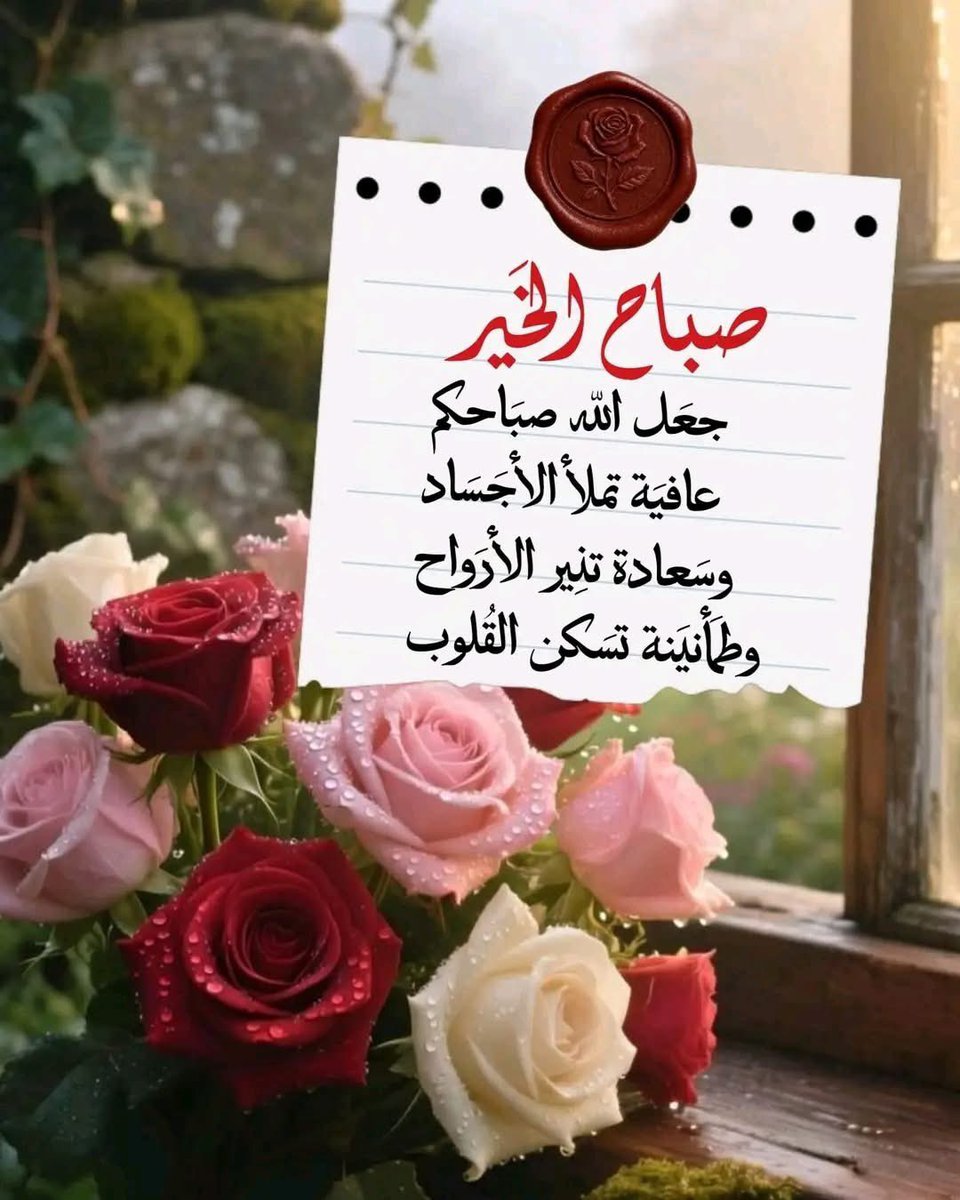 صباح الخَير
جعَل الله صبَاحكم
عافيَة تملأ الأجَسَاد
وسَعادة تنِير الأرَواح
وطمَأنيَنة تسَكن القُلوب